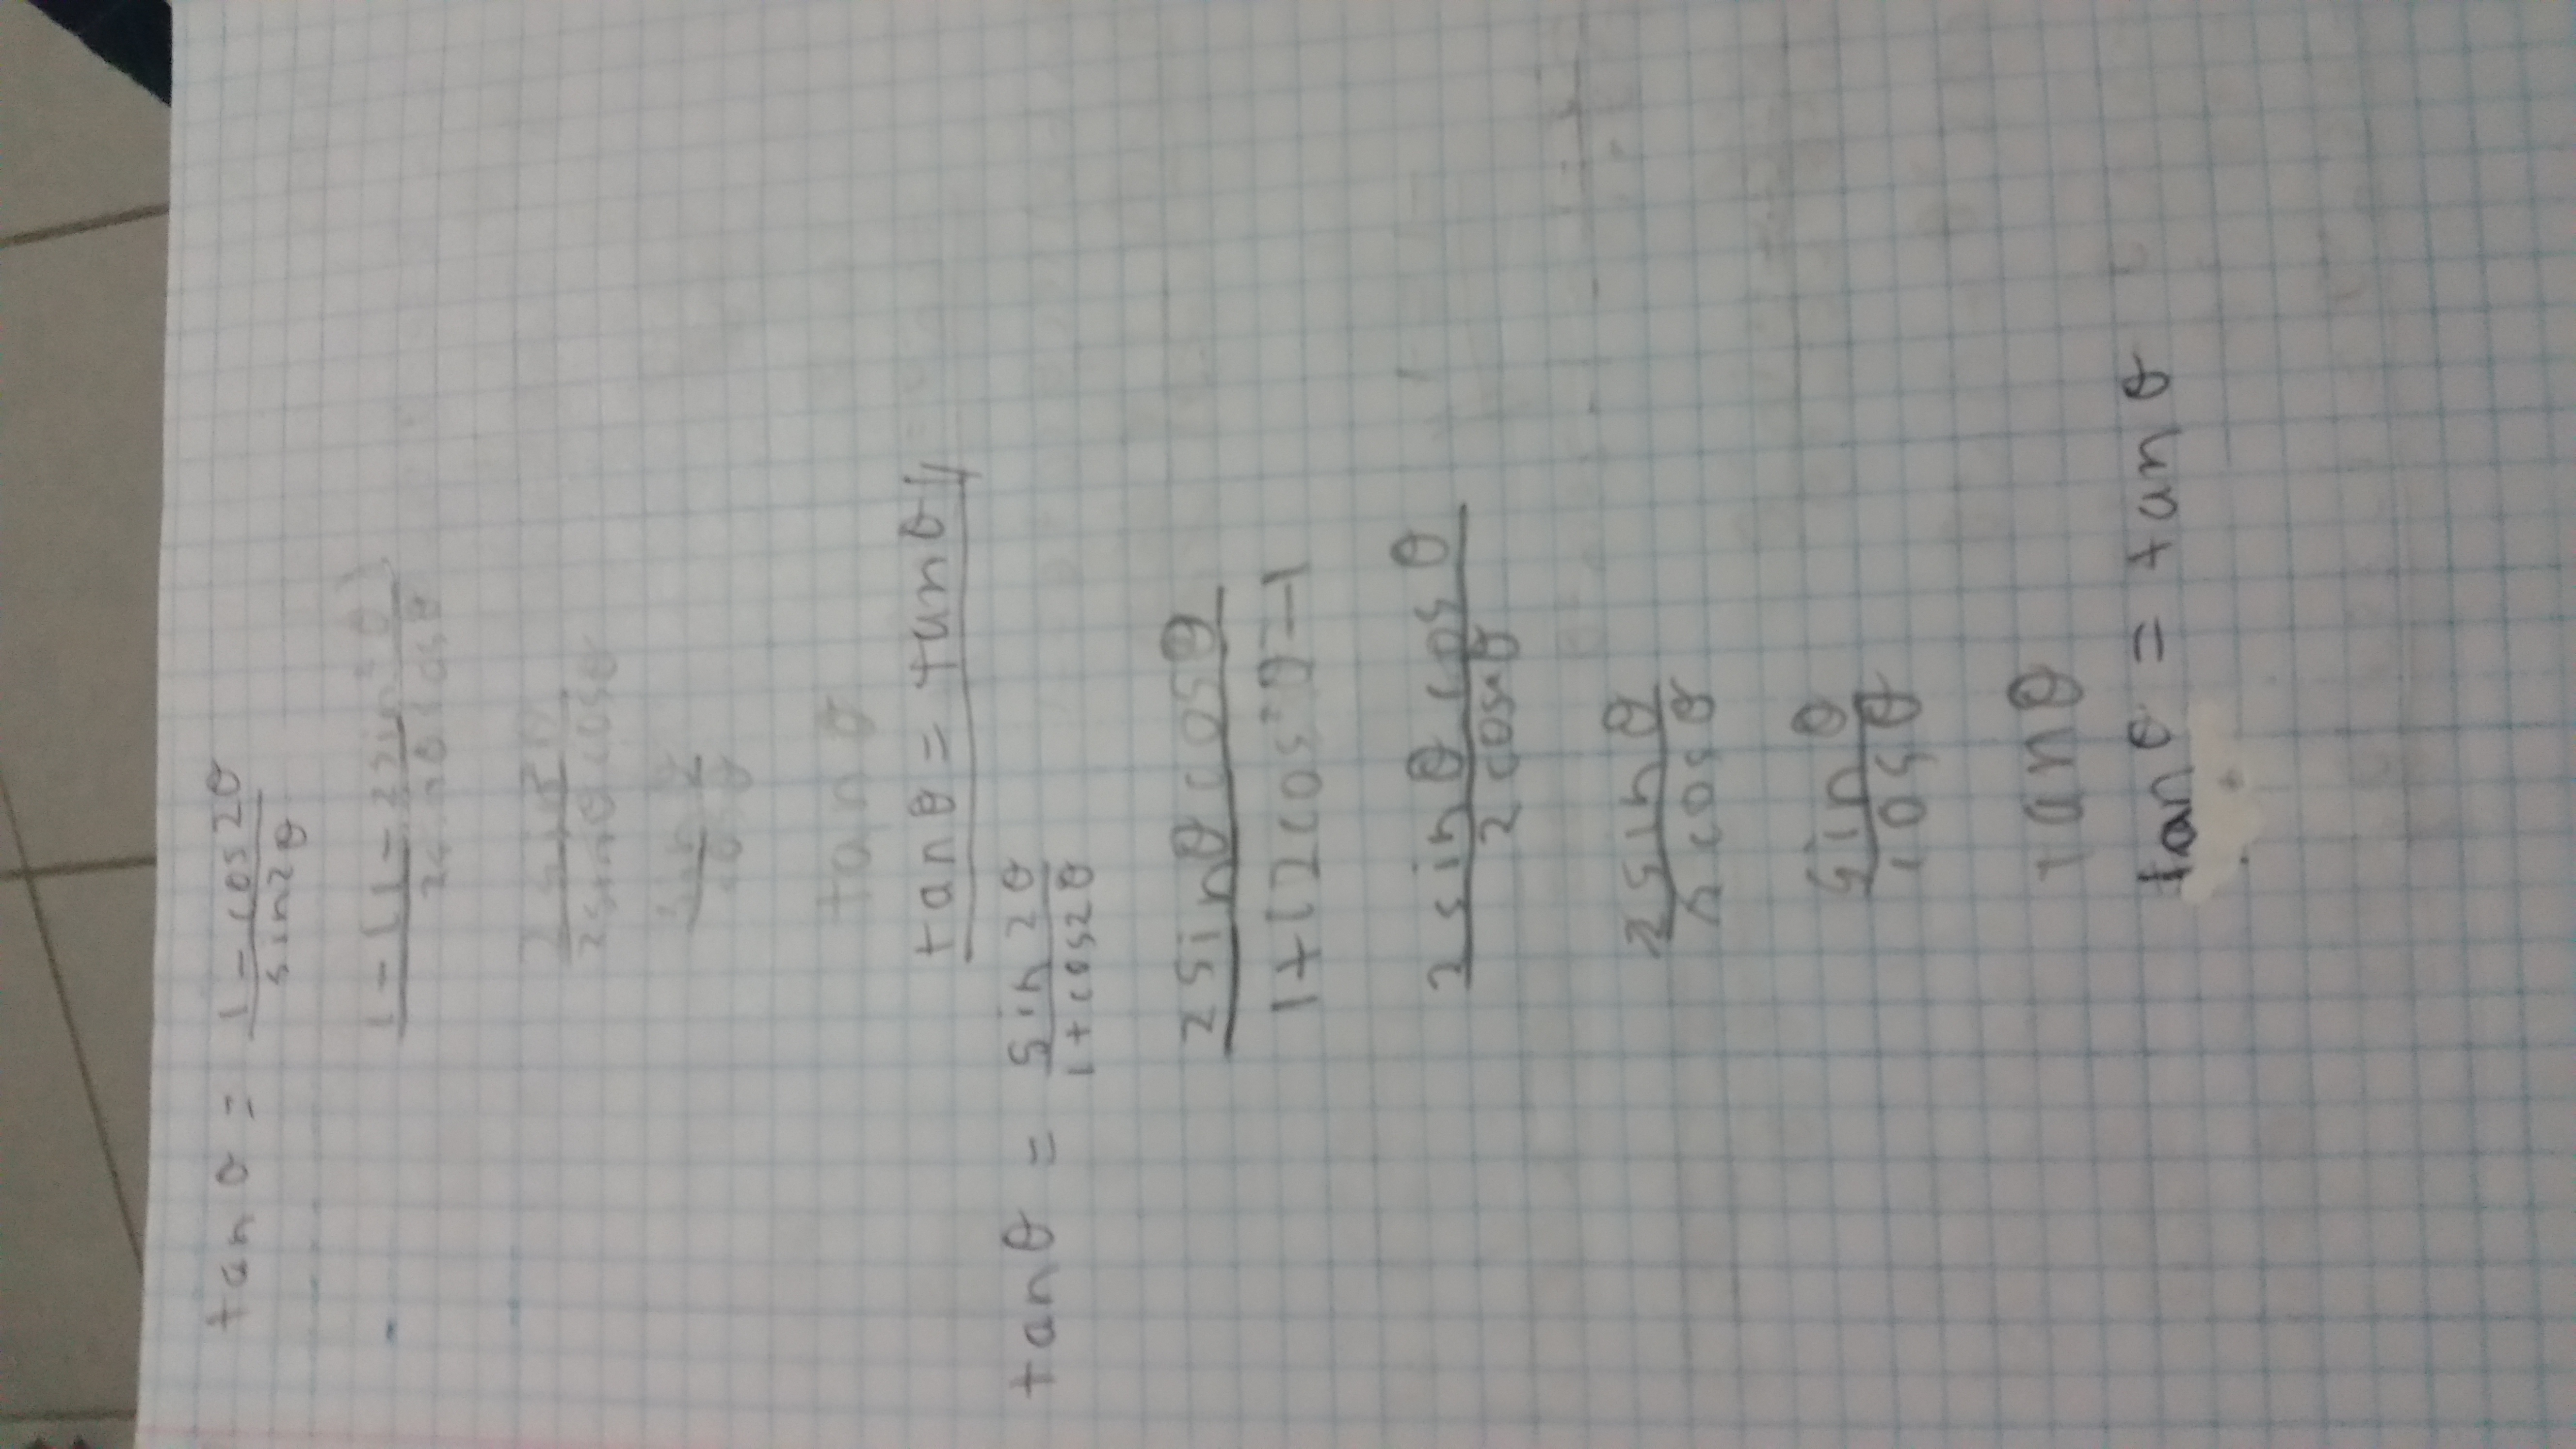 tan θ = 1 - cos 2θ / sin 2θ
1 - (1 - 2sin² θ) / 2sin θ cos θ
2 sin² θ / 2 sin θ cos θ
sin θ / cos θ
tan θ
tan θ = tan θ //
tan θ = sin 2θ / 1 + cos 2θ
2 sin θ cos θ / 1 + (2cos² θ - 1
2 sin θ cos θ / 2 cos² θ
2 sin θ / 2 cos θ
sin θ / cos θ
tan θ
tan θ = tan θ